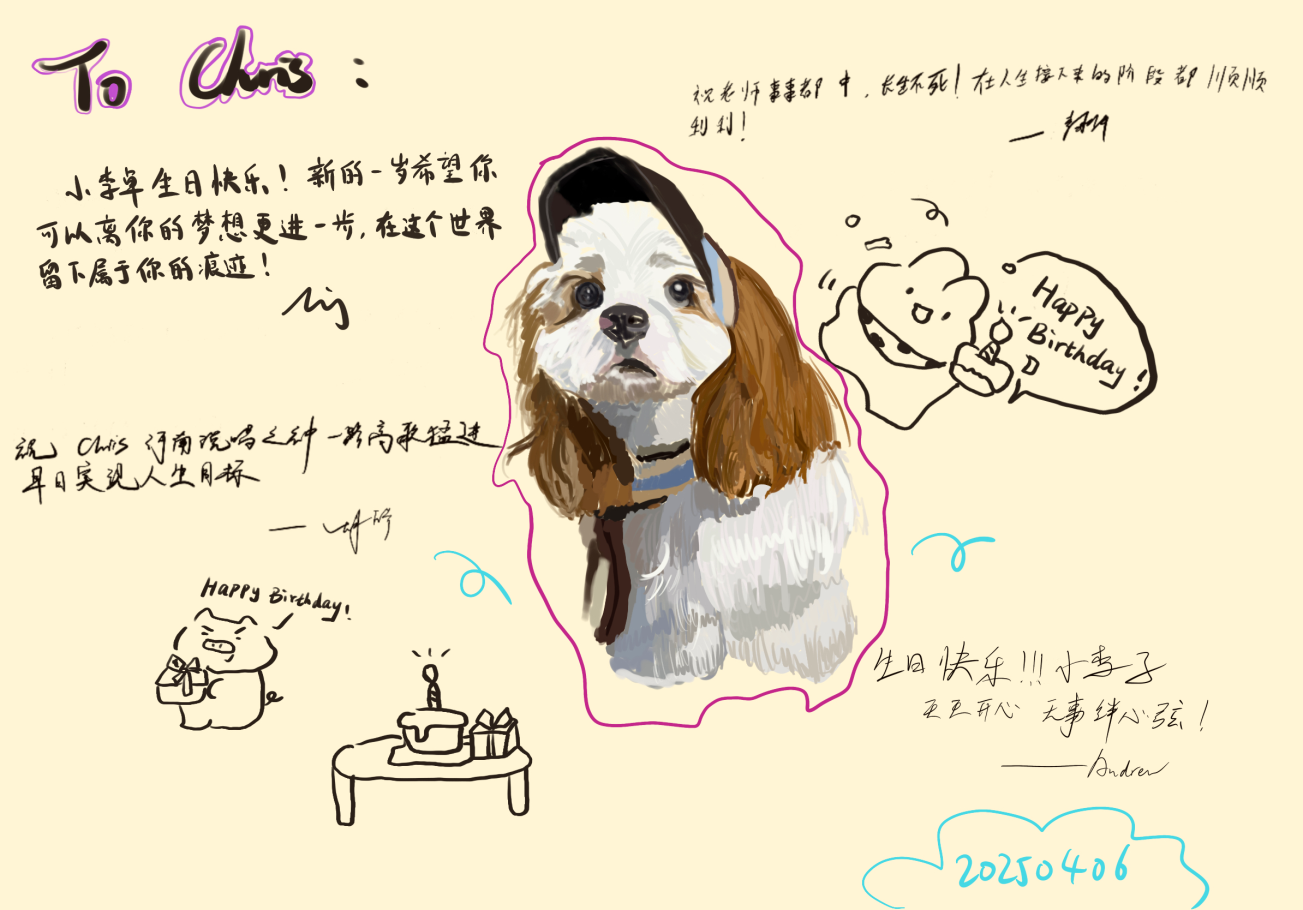 To Chris:
祝老师事事都中，长生不死！在人生接下来的阶段都顺顺
利利！
小李卓生日快乐！新的一岁希望你
可以离你的梦想更进一步，在这个世界
留下属于你的痕迹！
Happy
Birthday!
:D
祝 Chris 河南说唱之神 一路高歌猛进
早日实现人生目标
Happy Birthday!
生日快乐!!!小李子
天天开心 无事绊心弦！
——Andrew
20250406